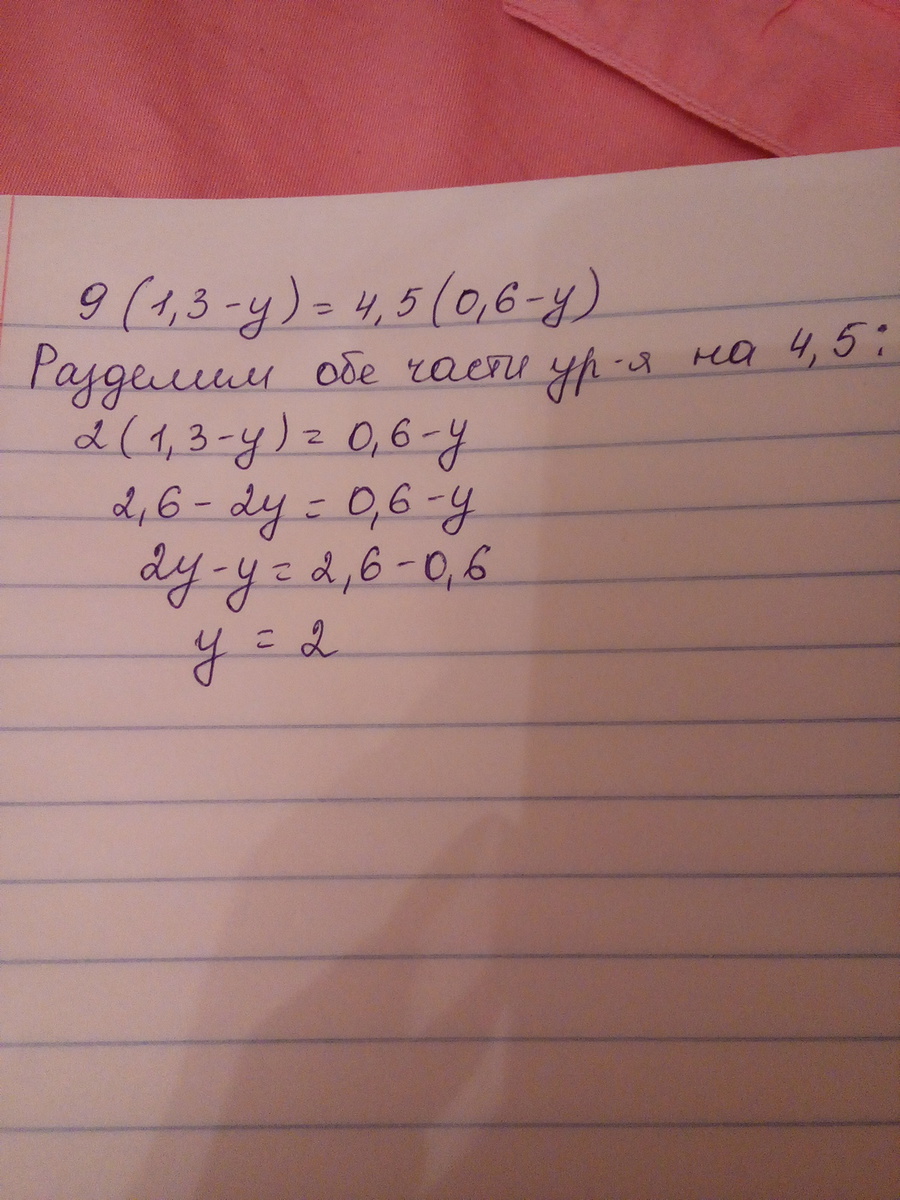 9(1,3-y)=4,5(0,6-y)
Разделим обе части ур-я на 4,5:
2(1,3-y)=0,6-y
2,6-2y=0,6-y
2y-y=2,6-0,6
y=2